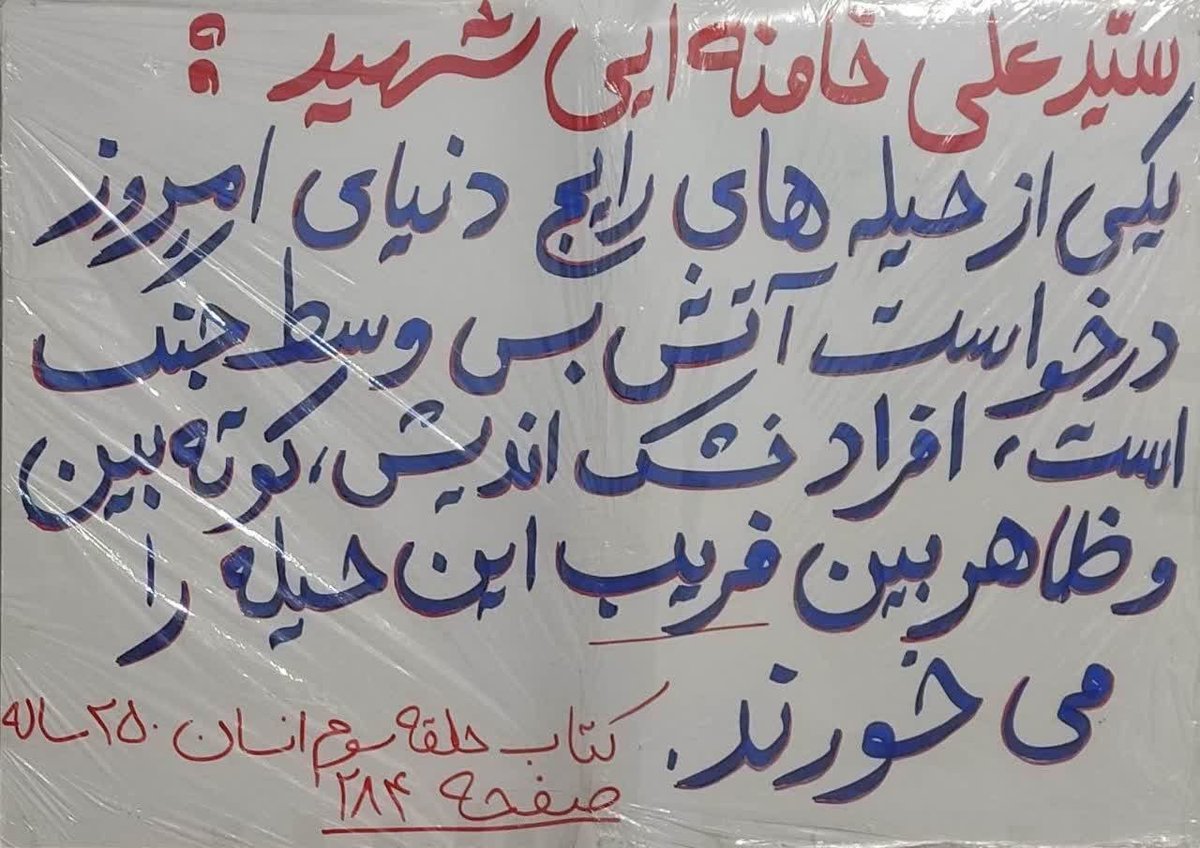 سیّد علی خامنه ایی شهید :
یکی از حیله های رایج دنیای امروز
درخواست آتش بس وسط جنگ
است، افراد خشک اندیش، کوته بین
و ظاهر بین فریب این حیله را
می خورند.
کتاب حلقه سوم انسان ۲۵۰ ساله
صفحه ۲۸۴